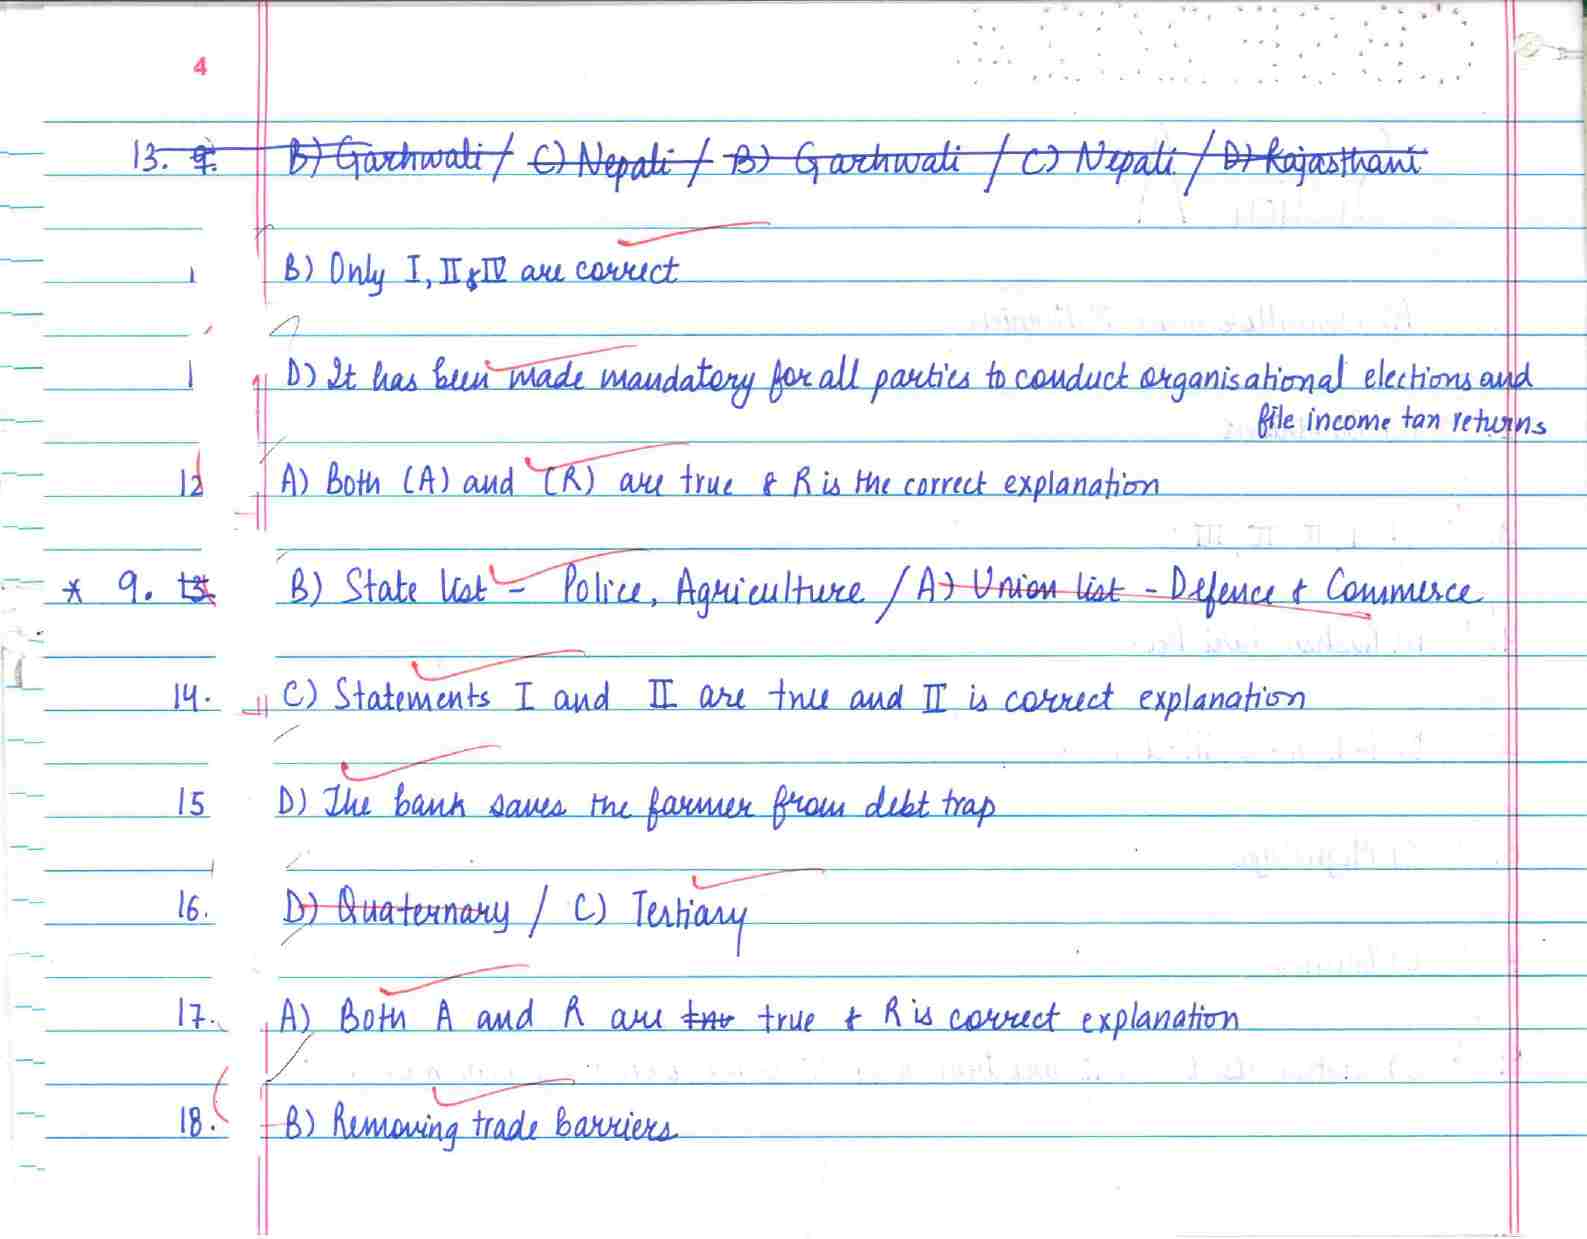 4
13. 9. B) Garhwali / C) Nepali / B) Garhwali / C) Nepali / D) Rajasthani
1 B) Only I, II & IV are correct
1 D) It has been made mandatory for all parties to conduct organisational elections and
file income tax returns
12 A) Both (A) and (R) are true & R is the correct explanation
* 9. 13. B) State list - Police, Agriculture / A) Union list - Defence & Commerce
14. C) Statements I and II are true and II is correct explanation
15 D) The bank saves the farmer from debt trap
16. D) Quaternary / C) Tertiary
17. A) Both A and R are tru true & R is correct explanation
18. B) Removing trade barriers